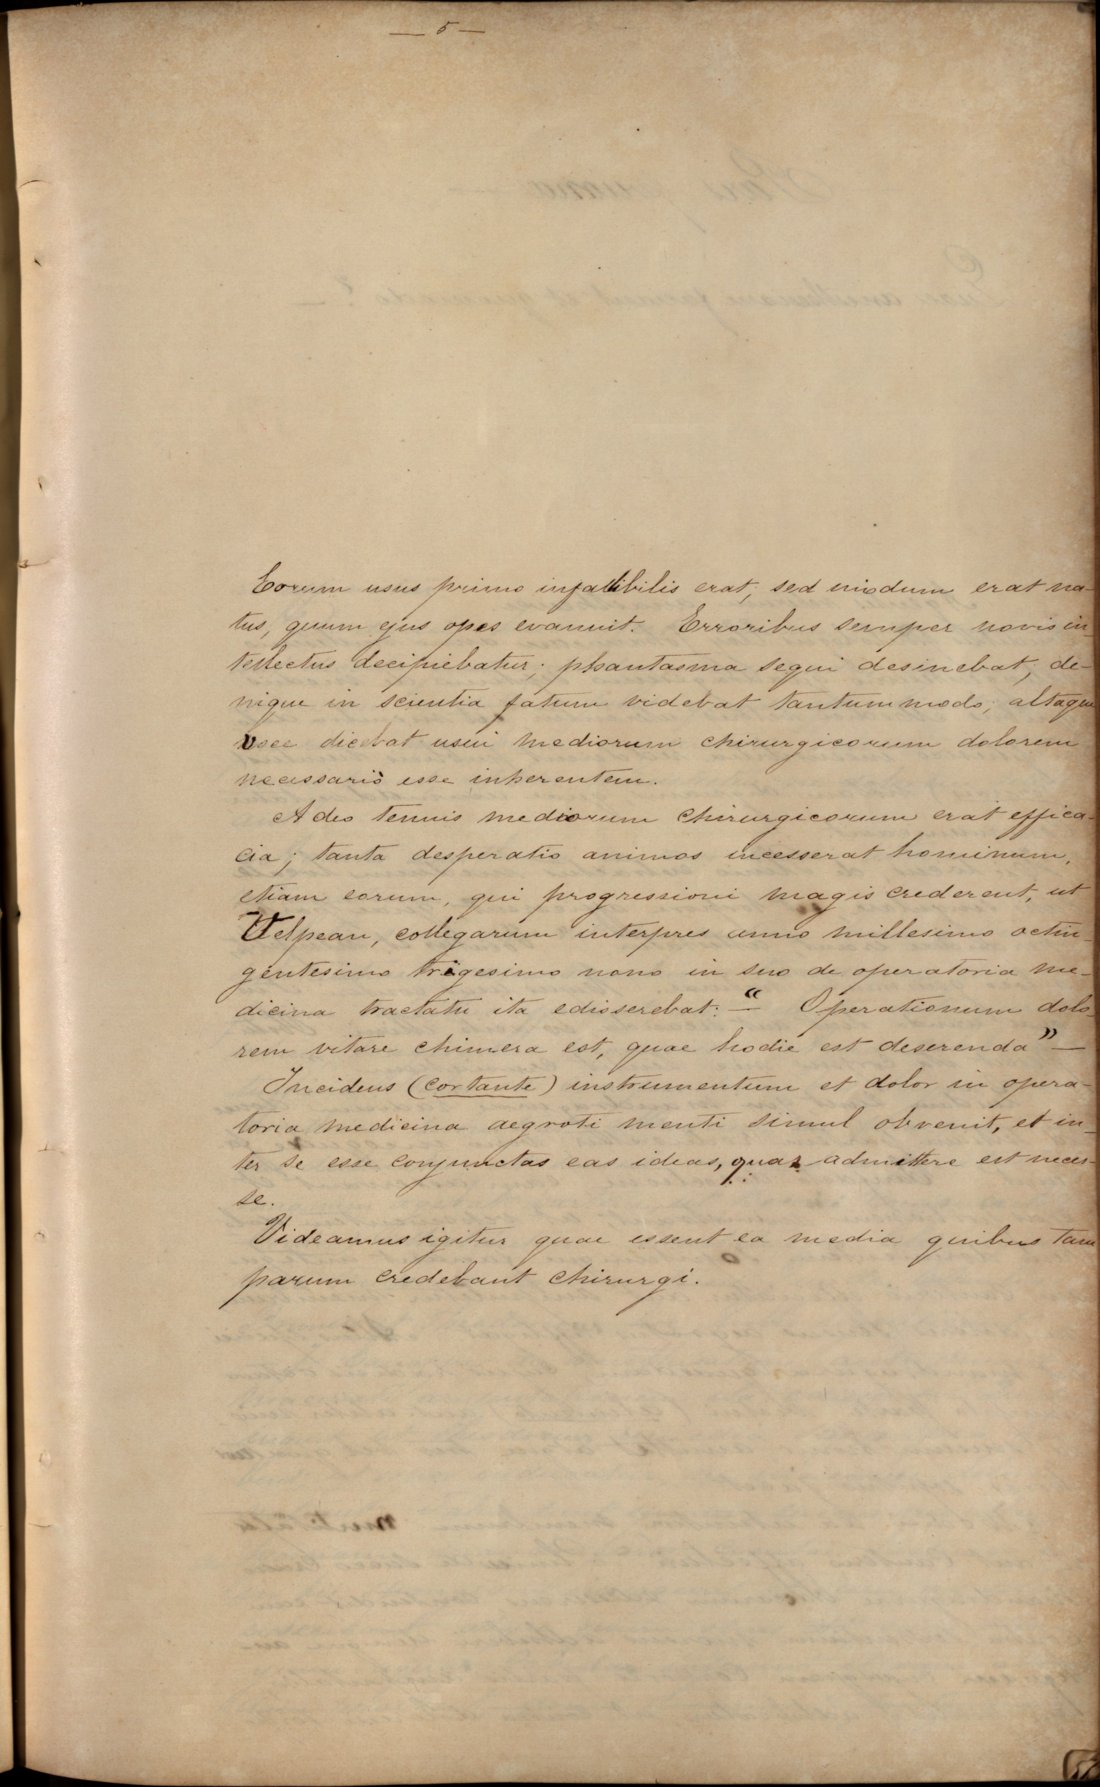 — 5 —
Eorum usus primo infallibilis erat, sed modum erat na-
tus, quum ejus opes evanuit. Erroribus semper novis in-
tellectus decipiebatur; phantasma sequi desinebat, de-
nique in scientia fatum videbat tantummodo; altaque
voce dicebat usui mediorum chirurgicorum dolorem
necessariò esse inherentem.
Adeo tenuis mediorum chirurgicorum erat effica-
cia; tanta desperatio animos incesserat hominum,
etiam eorum, qui progressioni magis crederent, ut
Velpeau, collegarum interpres anno millesimo octin-
gentesimo trigesimo nono in suo de operatoria me-
dicina tractatu ita edisserebat: — “ Operationum dolo-
rem vitare chimera est, quae hodie est deserenda” —
Incidens (cortante) instrumentum et dolor in opera-
toria medicina aegroti menti simul obvenit, et in-
ter se esse conjunctas eas ideas, quas admittere est neces-
se.
Videamus igitur quae essent ea media quibus tam
parum credebant chirurgi.